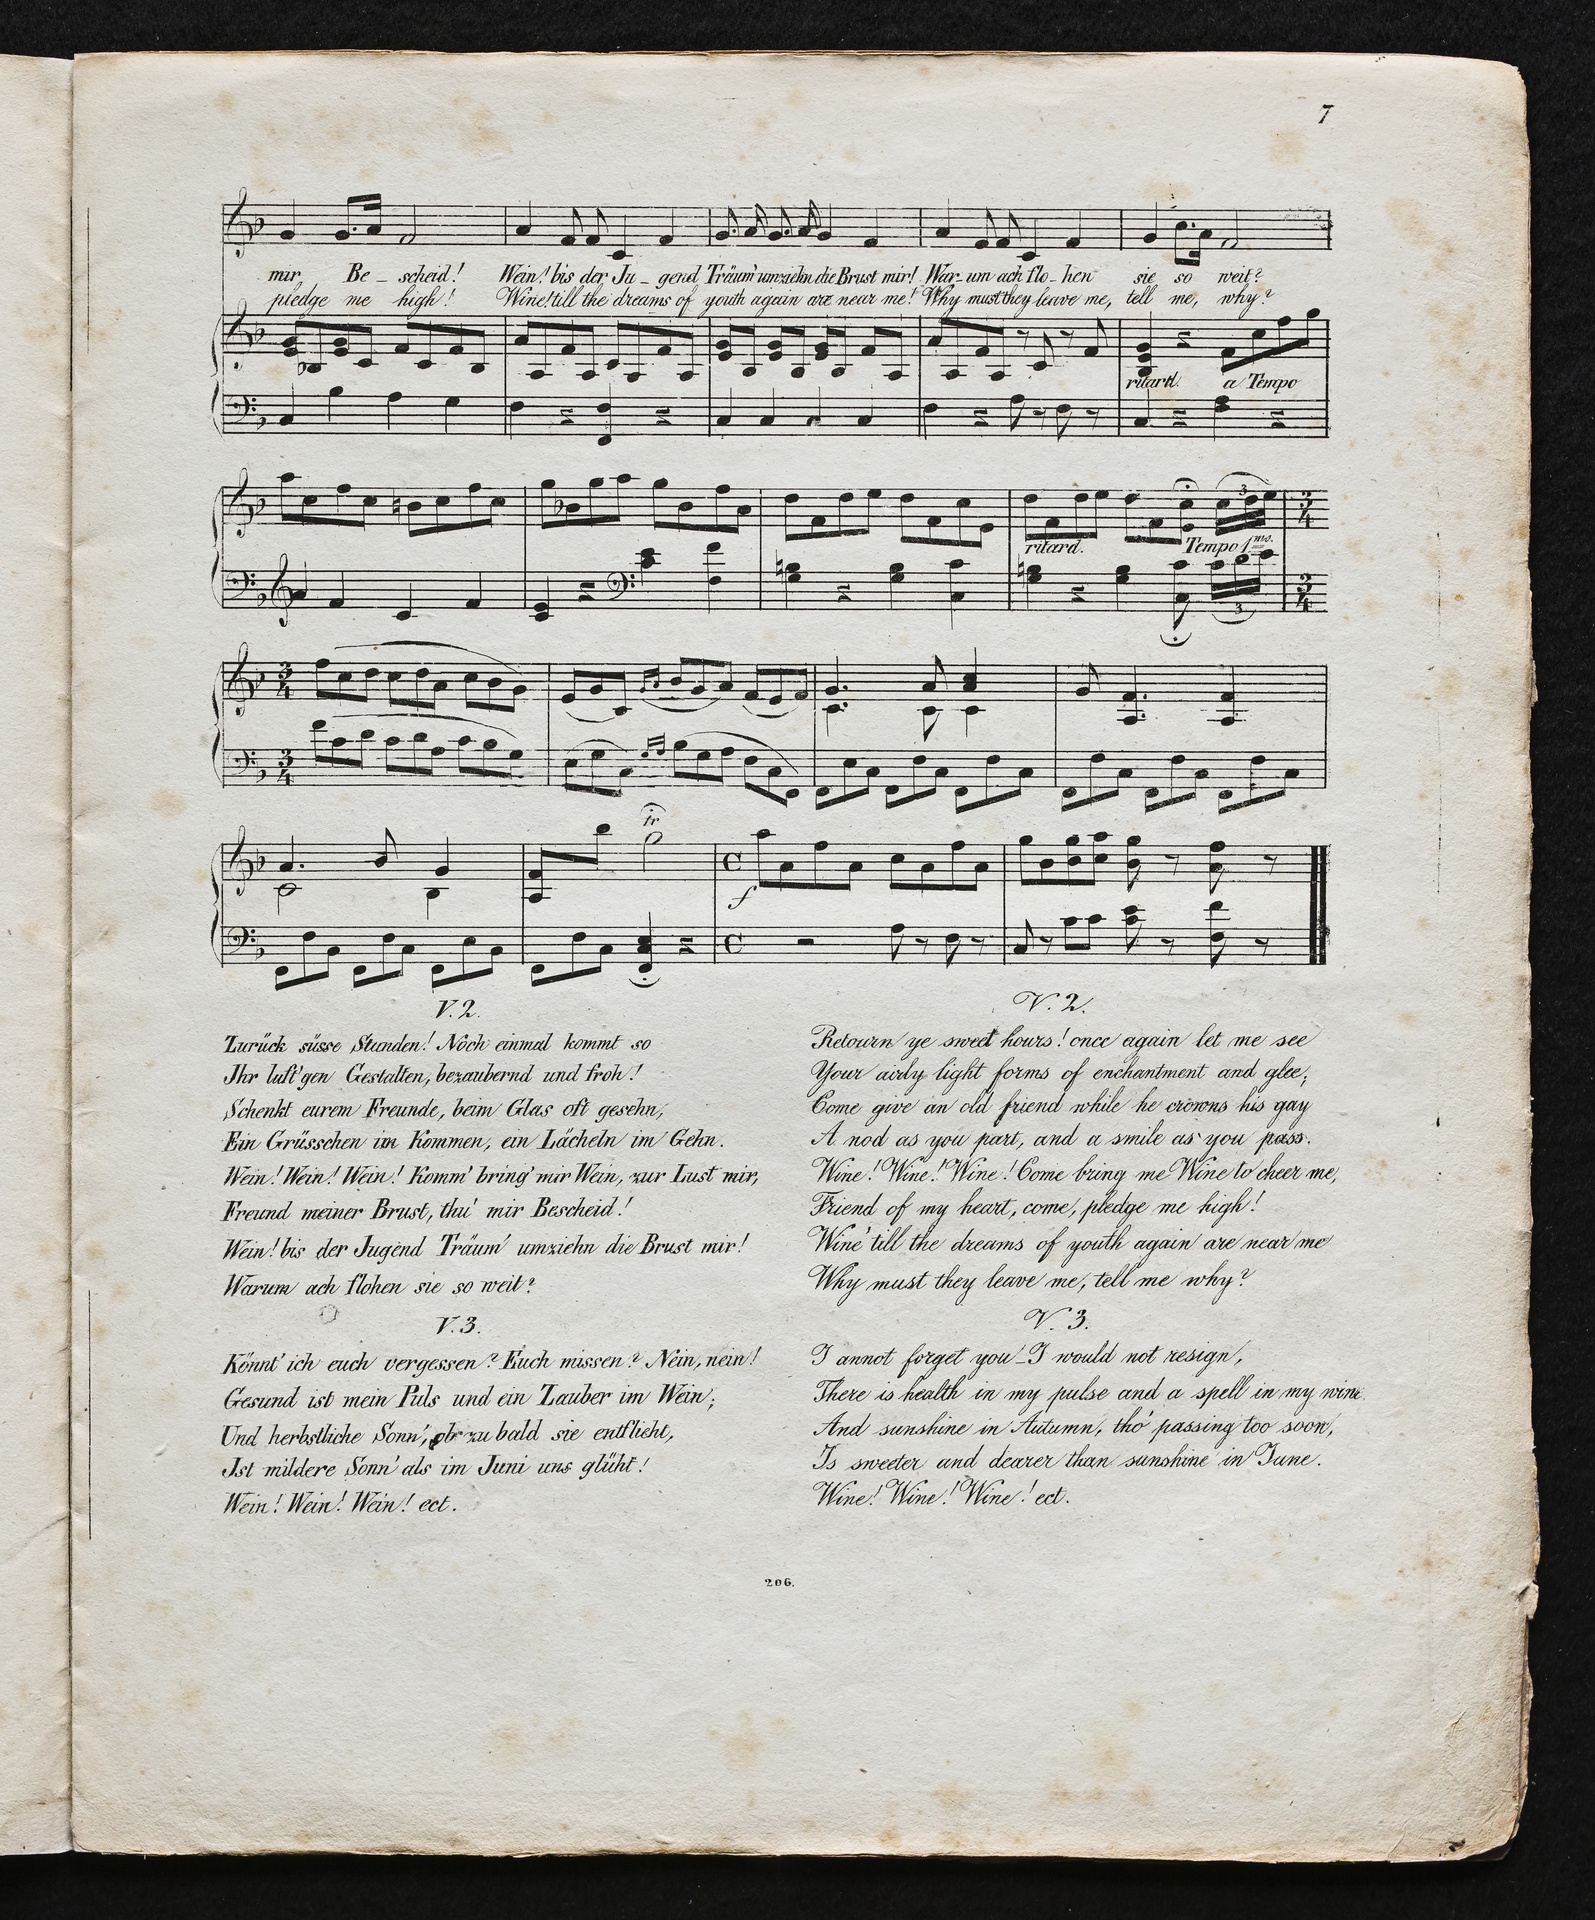 7
mir Be_scheid! Wein! bis der Ju_gend Träum' umziehn die Brust mir! War_um ach flo_hen sie so weit?
pledge me high! Wine! till the dreams of youth again are near me! Why must they leave me, tell me, why?
ritard. a Tempo
ritard. Tempo 1mo.
3
3
tr
f
V. 2.
Zurück süsse Stunden! Noch einmal kommt so
Jhr luft'gen Gestalten, bezaubernd und froh!
Schenkt eurem Freunde, beim Glas oft gesehn,
Ein Grüsschen im Kommen, ein Lächeln im Gehn.
Wein! Wein! Wein! Komm' bring' mir Wein, zur Lust mir,
Freund meiner Brust, thu' mir Bescheid!
Wein! bis der Jugend Träum' umziehn die Brust mir!
Warum ach flohen sie so weit?
V. 3.
Könnt' ich euch vergessen? Euch missen? Nein, nein!
Gesund ist mein Puls und ein Zauber im Wein;
Und herbstliche Sonn', ob zu bald sie entflieht,
Jst mildere Sonn' als im Juni uns glüht!
Wein! Wein! Wein! ect.
V. 2.
Retourn ye sweet hours! once again let me see
Your airly light forms of enchantment and glee;
Come give an old friend while he crowns his gay
A nod as you part, and a smile as you pass.
Wine! Wine! Wine! Come bring me Wine to cheer me,
Friend of my heart, come, pledge me high!
Wine' till the dreams of youth again are near me
Why must they leave me, tell me why?
V. 3.
I annot forget you_I would not resign,
There is health in my pulse and a spell in my wine.
And sunshine in Autumn, tho' passing too soon,
Is sweeter and dearer than sunshine in June.
Wine! Wine! Wine! ect.
206.